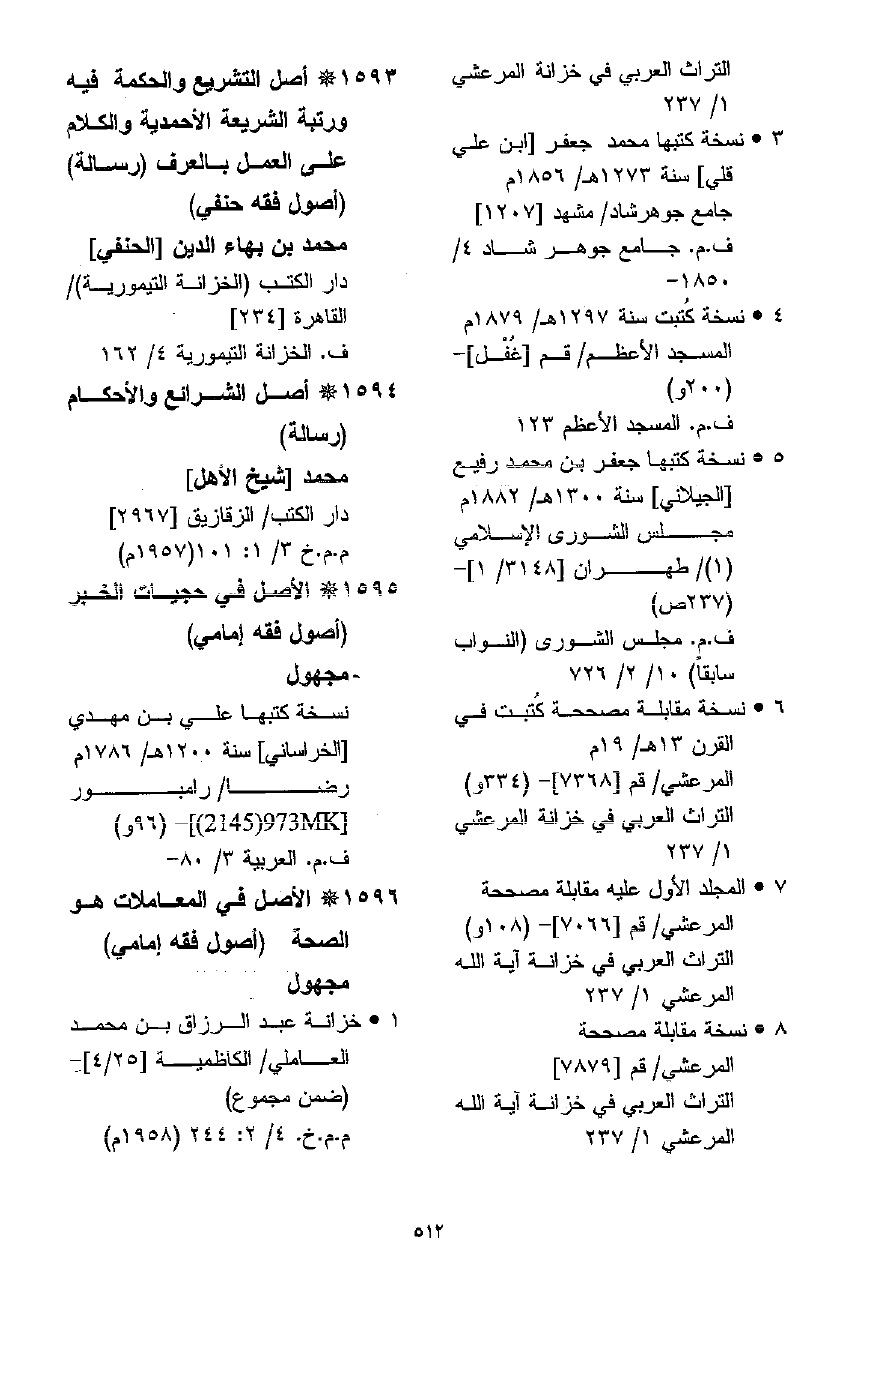 التراث العربي في خزانة المرعشي
١/ ٢٣٧
٣ • نسخة كتبها محمد جعفر [ابن علي
قلي] سنة ١٢٧٣هـ/ ١٨٥٦م
جامع جوهرشاد/ مشهد [١٢٠٧]
ف.م. جامع جوهر شاد ٤/
١٨٥٠–
٤ • نسخة كُتبت سنة ١٢٩٧هـ/ ١٨٧٩م
المسجد الأعظم/ قم [غُفْل]–
(٢٠٠و)
ف.م. المسجد الأعظم ١٢٣
٥ • نسخة كتبها جعفر بن محمد رفيع
[الجيلاني] سنة ١٣٠٠هـ/ ١٨٨٢م
مجلس الشورى الإسلامي
(١)/ طهران [٣١٤٨/ ١]–
(٢٣٧ص)
ف.م. مجلس الشورى (النواب
سابقاً) ١٠/ ٢/ ٧٢٦
٦ • نسخة مقابلة مصححة كُتبت في
القرن ١٣هـ/ ١٩م
المرعشي/ قم [٧٣٦٨]– (٣٣٤و)
التراث العربي في خزانة المرعشي
١/ ٢٣٧
٧ • المجلد الأول عليه مقابلة مصححة
المرعشي/ قم [٧٠٦٦]– (١٠٨و)
التراث العربي في خزانة آية الله
المرعشي ١/ ٢٣٧
٨ • نسخة مقابلة مصححة
المرعشي/ قم [٧٨٧٩]
التراث العربي في خزانة آية الله
المرعشي ١/ ٢٣٧
١٥٩٣* أصل التشريع والحكمة فيه
ورتبة الشريعة الأحمدية والكلام
على العمل بالعرف (رسالة)
(أصول فقه حنفي)
محمد بن بهاء الدين [الحنفي]
دار الكتب (الخزانة التيمورية)/
القاهرة [٢٣٤]
ف. الخزانة التيمورية ٤/ ١٦٢
١٥٩٤* أصل الشرائع والأحكام
(رسالة)
محمد [شيخ الأهل]
دار الكتب/ الزقازيق [٢٩٦٧]
م.م.خ ٣/ ١: ١٠١(١٩٥٧م)
١٥٩٥* الأصل في حجيات الخبر
(أصول فقه إمامي)
مجهول-
نسخة كتبها علي بن مهدي
[الخراساني] سنة ١٢٠٠هـ/ ١٧٨٦م
رضا/ رامبور
[973MK(2145)]– (٩٦و)
ف.م. العربية ٣/ ٨٠–
١٥٩٦* الأصل في المعاملات هو
الصحة (أصول فقه إمامي)
مجهول
١ • خزانة عبد الرزاق بن محمد
العاملي/ الكاظمية [٤/٢٥]–
(ضمن مجموع)
م.م.خ. ٤/ ٢: ٢٤٤ (١٩٥٨م)
٥١٢